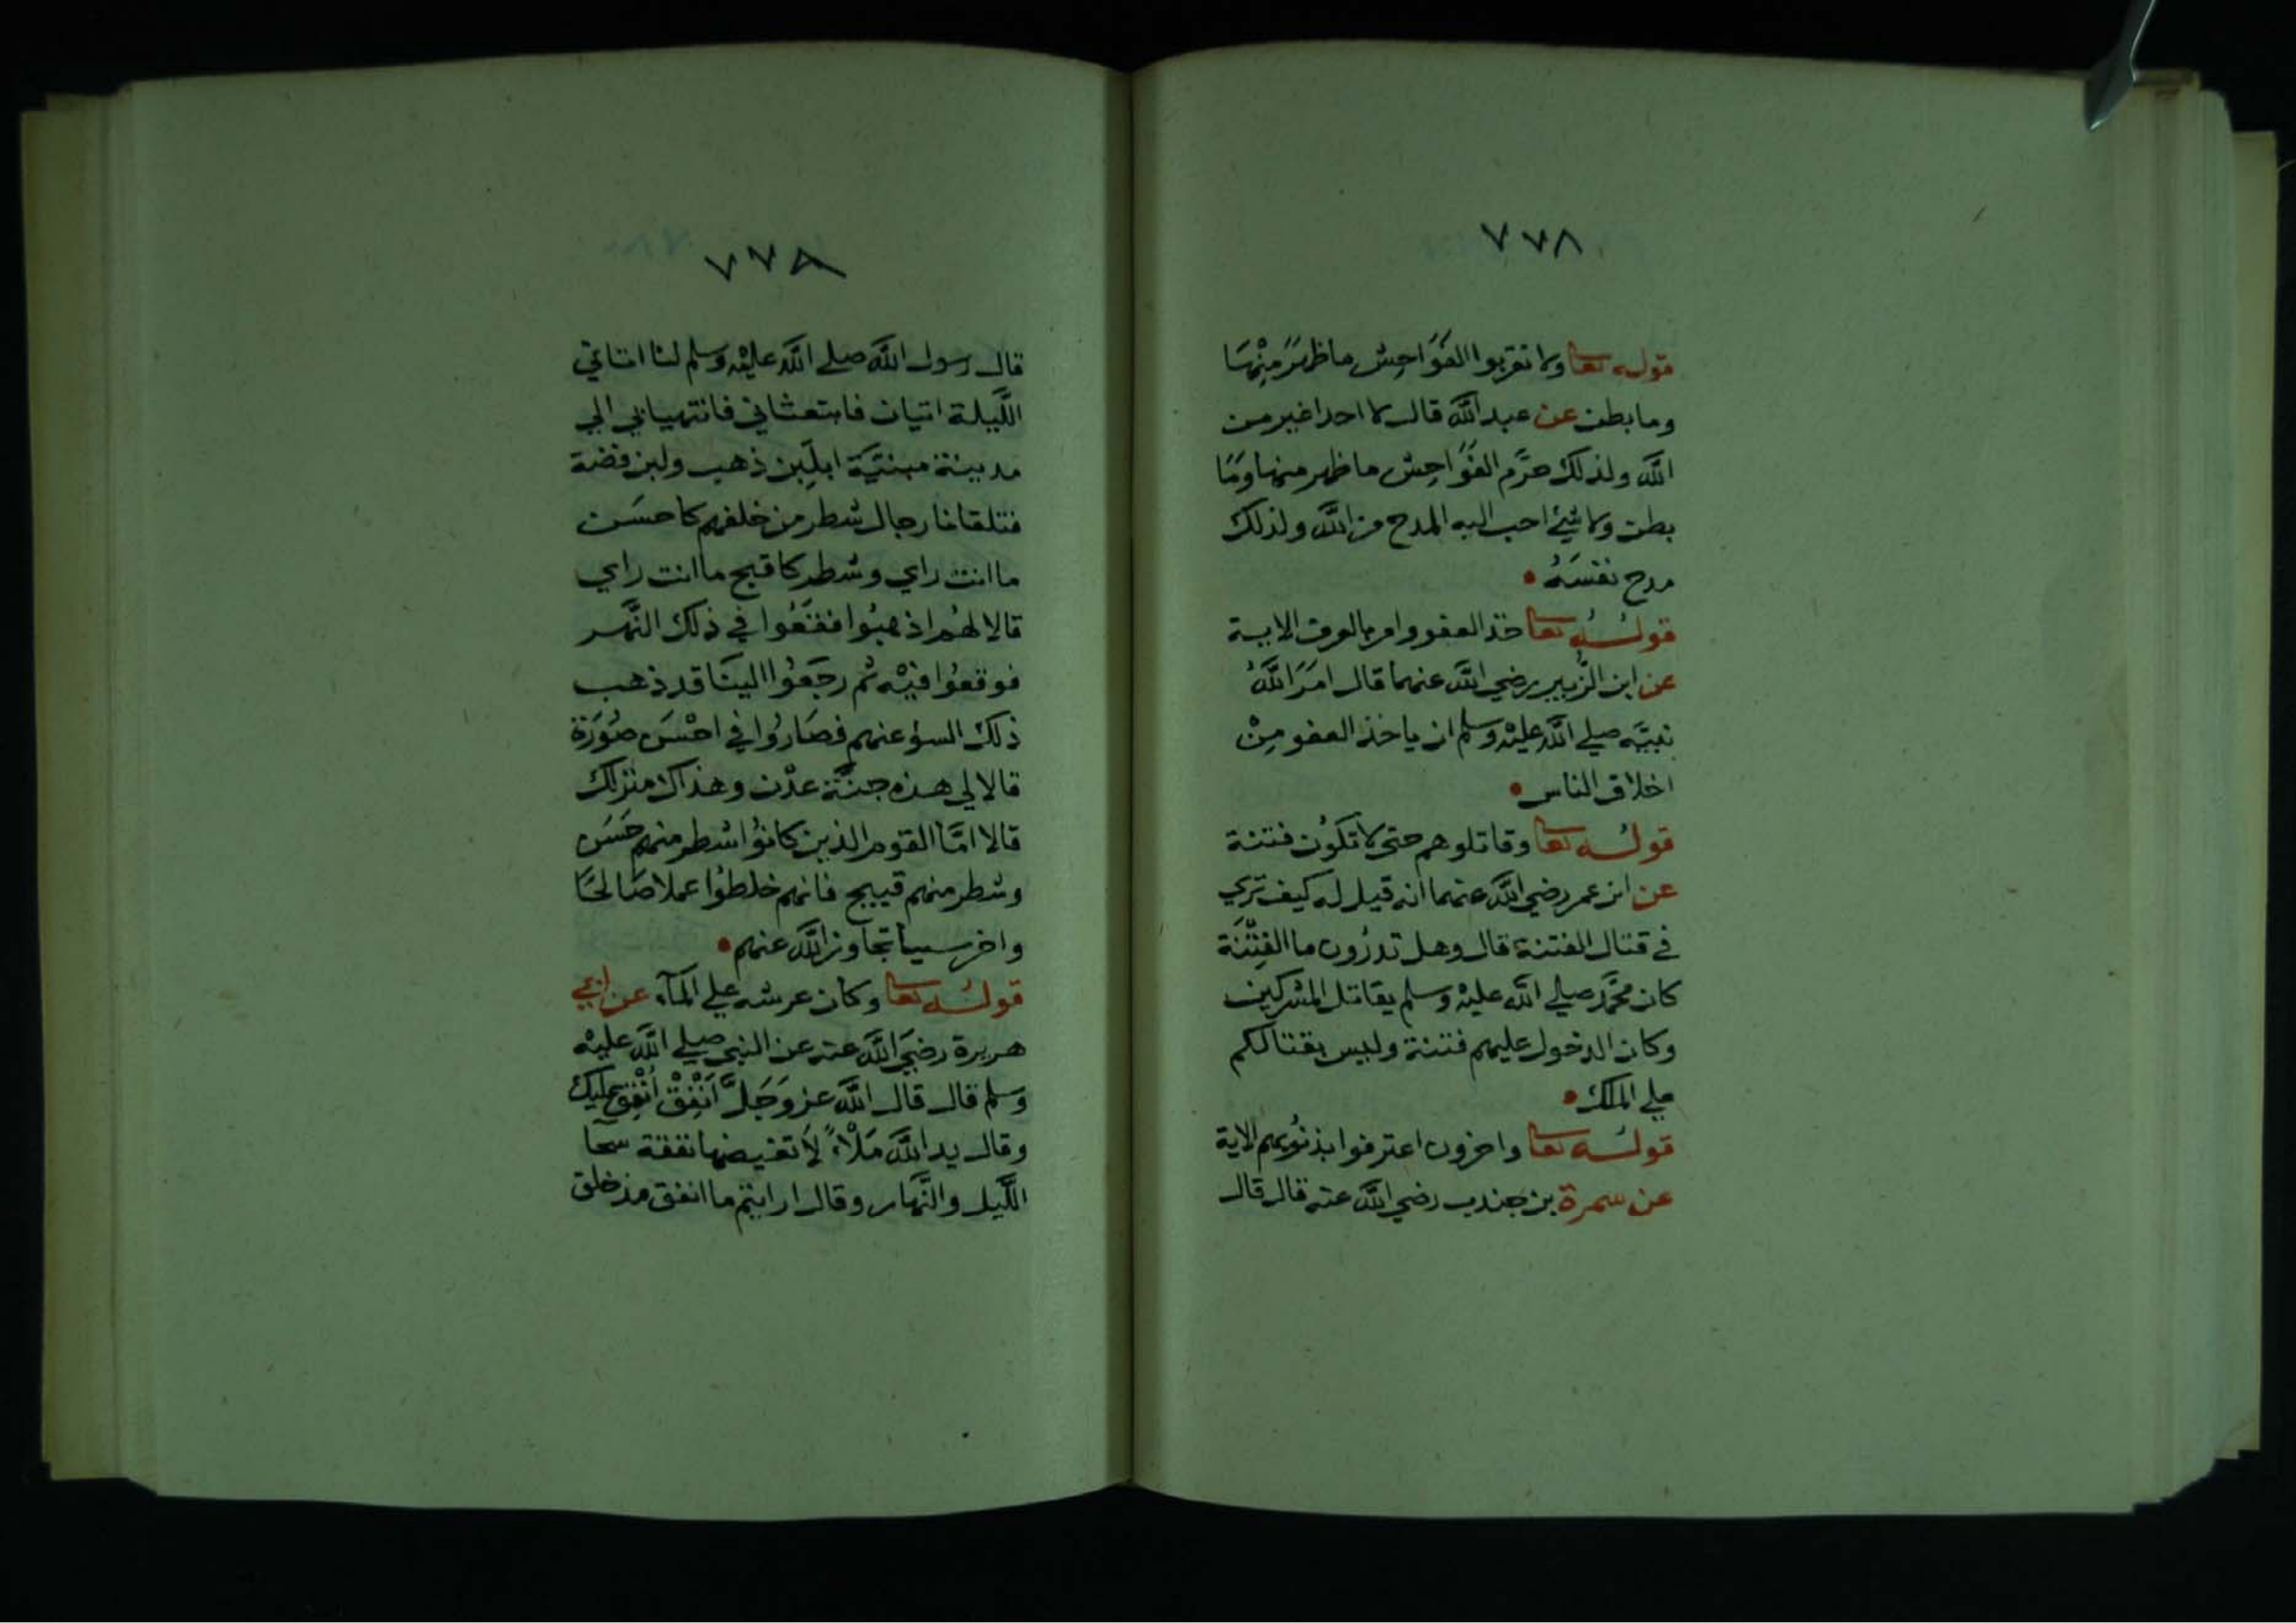 ٧٧٨
قوله تعا ولا تقربوا الفَوَاحِش ماظهَرَ مِنْهَا
وما بطن عن عبد الله قال لا احد اغير من
الله ولذلك حرَّم الفَوَاحِش ماظهر منها وَمَا
بطن ولا شئ احب اليه المدح من الله ولذلك
مدح نفسَهُ
قولُه تعا خذ العفو وامر بالعرف الاية
عن ابن الزُّبير رضي الله عنهما قال امَرَ اللهُ
نبيَّه صلي الله عليْه وسلم ان ياخذ العفو مِنْ
اخلاق الناس
قولُه تعا وقاتلوهم حتى لا تكُون فتنة
عن ابن عمر رضي الله عنهما انه قيل له كيف تري
في قتال الفتنة قال وهل تدرُون ما الفِتْنَة
كان محمَّد صلي الله عليْه وسلم يقاتل المشركين
وكان الدخول عليهم فتنة وليس بقتالكم
علي الملك
قولُه تعا واخرون اعترفوا بذنُوبهم الاية
عن سمرة بن جندب رضي الله عنه قال قال
٧٧٨
قال رسول الله صلے الله عليْه وسلم لنا اتاني
اللَّيلة اتيان فابتعثاني فانتهيا بي الي
مدينة مبنيَّة ابلَبِن ذهب ولبن فضة
فتلقانا رجال شطر من خلقهم كاحسَن
ما انت راي وشطر كاقبح ما انت راي
قالا لهُم اذهبُوا فقَعُوا في ذلك النَّهر
فوقعُوا فيْه ثم رجَعُوا الينَا قد ذهب
ذلك السؤ عنهم فصَارُوا في احْسَن صُوَرَة
قالا لي هذه جنَّة عدْن وهذاك منزلك
قالا امَّا القوم الذين كانوُا شطر منهم حَسَن
وشطر منهم قبيح فانهم خلطوُا عملا صَالحًا
واخر سيا تجاوز الله عنهم
قولُه تعا وكان عرشه علي المآء عن ابي
هريرة رضيَ الله عنه عن النبي صلے الله عليْه
وسلم قال قال الله عز وَجَلَّ اَنْفِقْ اُنْفِق عليك
وقال يد الله مَلْاءً لَا تغيضها نفقة سحا
اللَّيل والنَّهار وقال ارايتم ما انفق مذ خلق